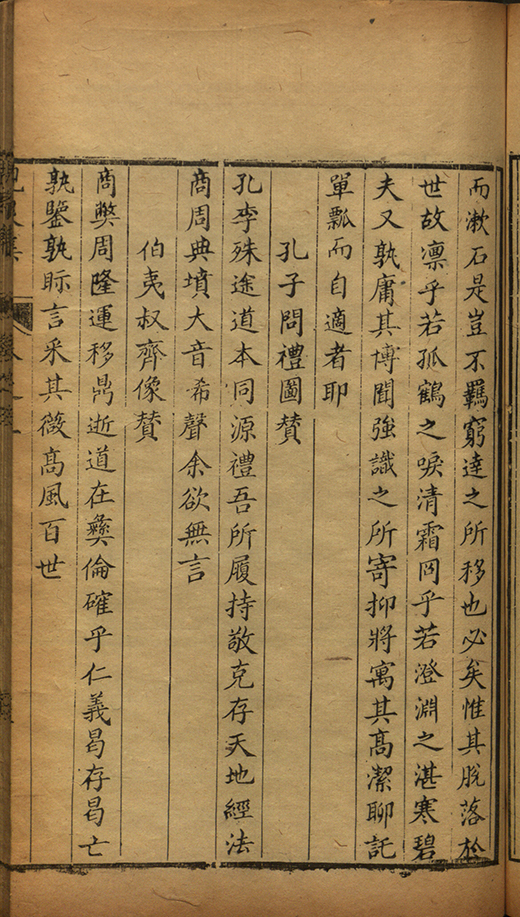 而漱石是豈不羈窮達之所移也必矣惟其脫落於
世故凛乎若孤鶴之唳清霜冏乎若澄淵之湛寒碧
夫又孰庸其博聞強識之所寄抑將寓其髙潔聊託
單瓢而自適者耶
孔子問禮圖賛
孔李殊途道本同源禮吾所履持敬克存天地經法
商周典墳大音希聲余欲無言
伯夷叔齊像賛
商弊周隆運移鼎逝道在彛倫確乎仁義曷存曷亡
孰鑒孰眎言采其薇髙風百世